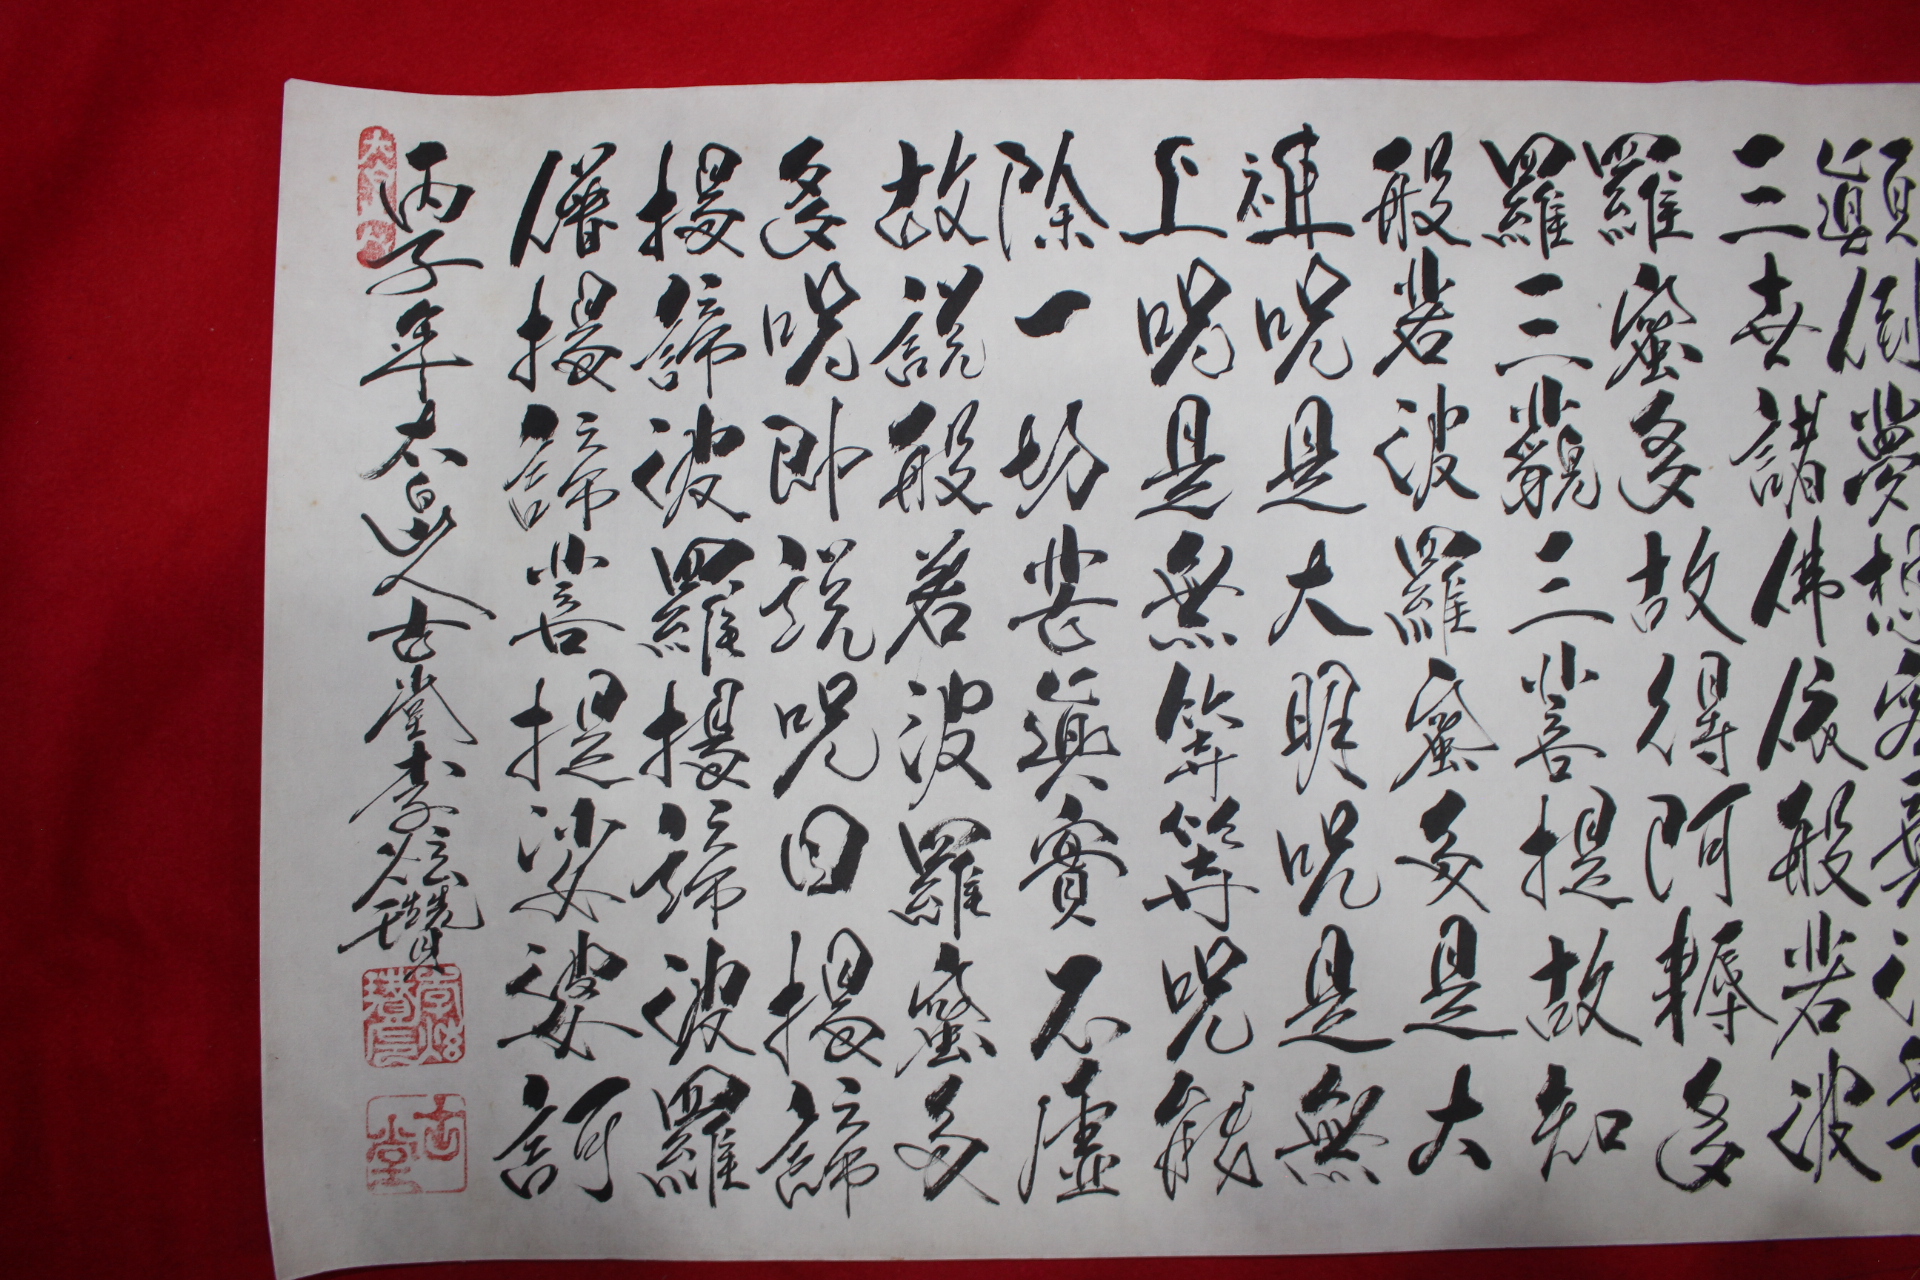 顚倒夢想究竟
三世諸佛依般若波
羅蜜多故得阿耨多
羅三藐三菩提故知
般若波羅蜜多是大
神呪是大明呪是無
上呪是無等等呪能
除一切苦眞實不虛
故說般若波羅蜜多
多呪卽說呪曰揭諦
揭諦波羅揭諦波羅
僧揭諦菩提娑婆訶
丙子年太白山人古堂李炫瓚
李炫瓚印
古堂